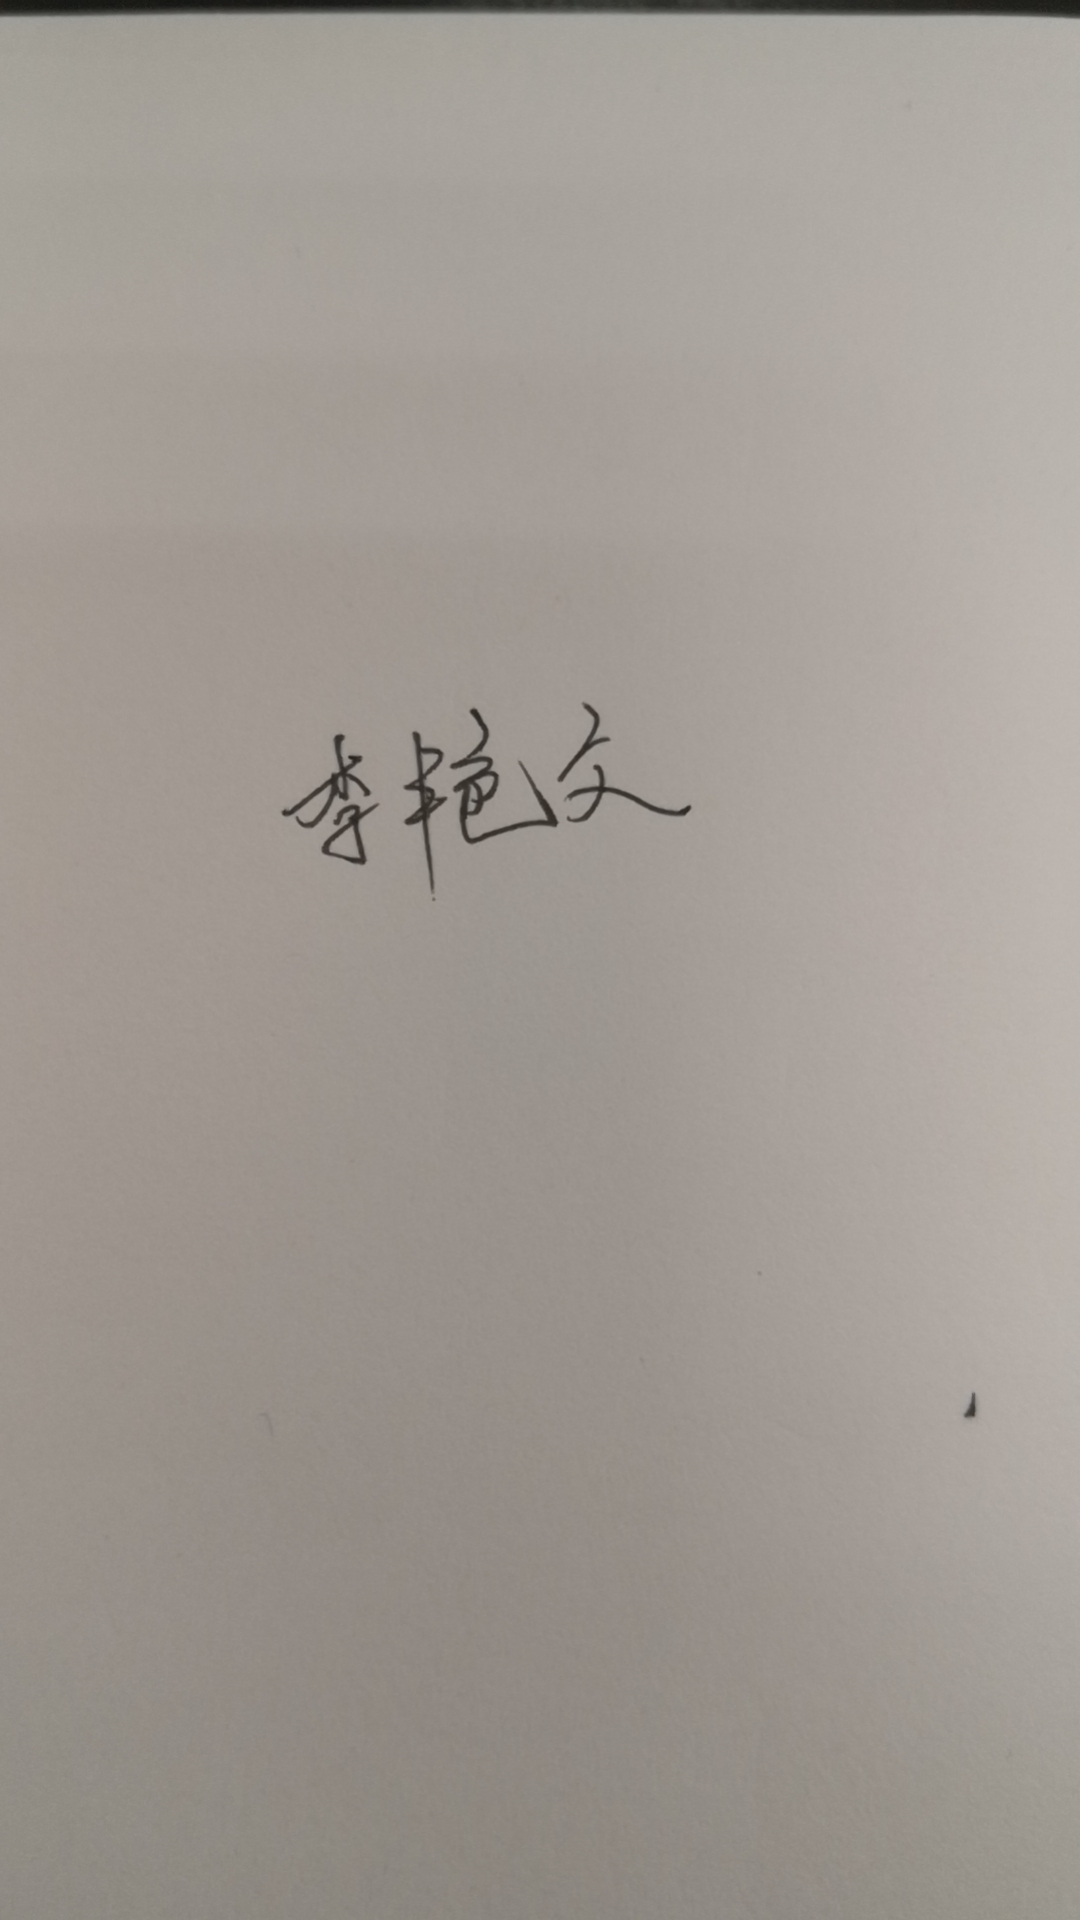 李艳文